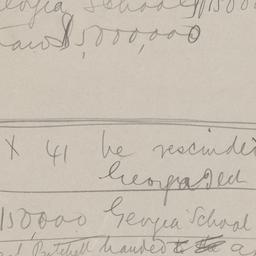 Georgia School $15000
$5,000,000
X 41 be rescinded
Georgia Ded
150,000 Georgia School
Mitchell handed to